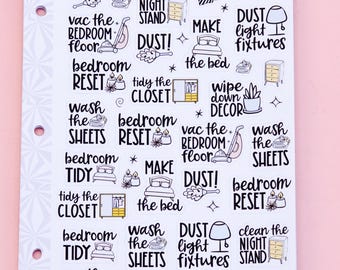 vac the
BEDROOM
floor
NIGHT
STAND
DUST!
MAKE
the bed
DUST
light
fixtures
bedroom
RESET
tidy the
CLOSET
wipe
down
DECOR
wash
the
SHEETS
bedroom
RESET
vac the
BEDROOM
floor
wash
the
SHEETS
bedroom
TIDY
MAKE
the bed
DUST!
bedroom
RESET
tidy the
CLOSET
bedroom
TIDY
wash
the
SHEETS
DUST
light
fixtures
clean the
NIGHT
STAND